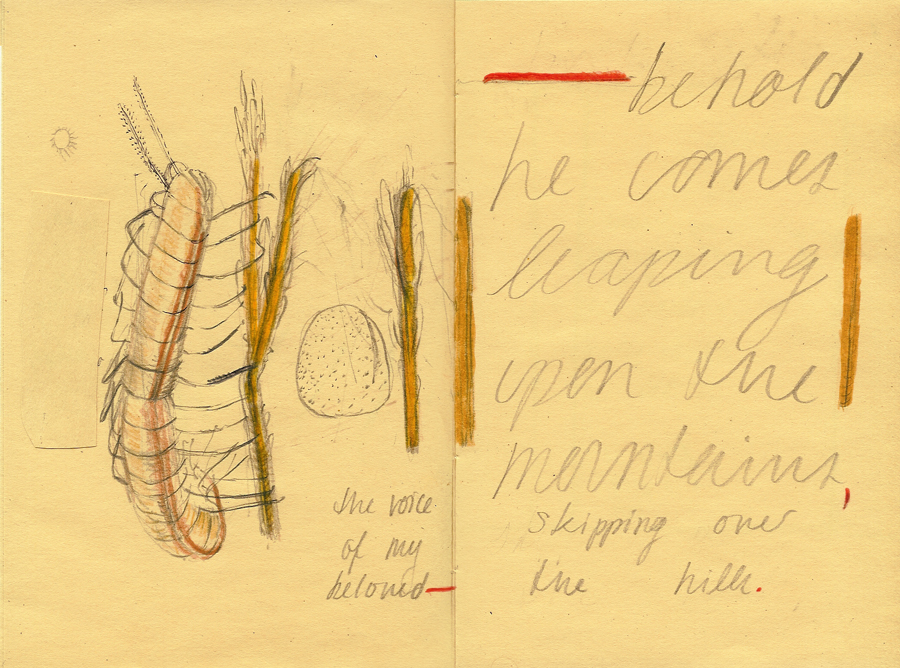 the voice
of my
beloved—
—behold
he comes
leaping
upon the
mountains,
skipping over
the hills.